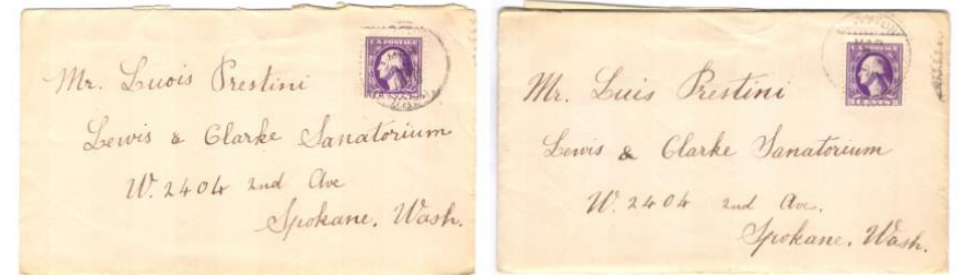 Mr. Luois Prestini
Lewis & Clarke Sanatorium
W. 2404 2nd Ave
Spokane, Wash.
U.S. POSTAGE
Mr. Luis Prestini
Lewis & Clarke Sanatorium
W. 2404 2nd Ave.
Spokane, Wash.
U.S. POSTAGE
3 CENTS 3